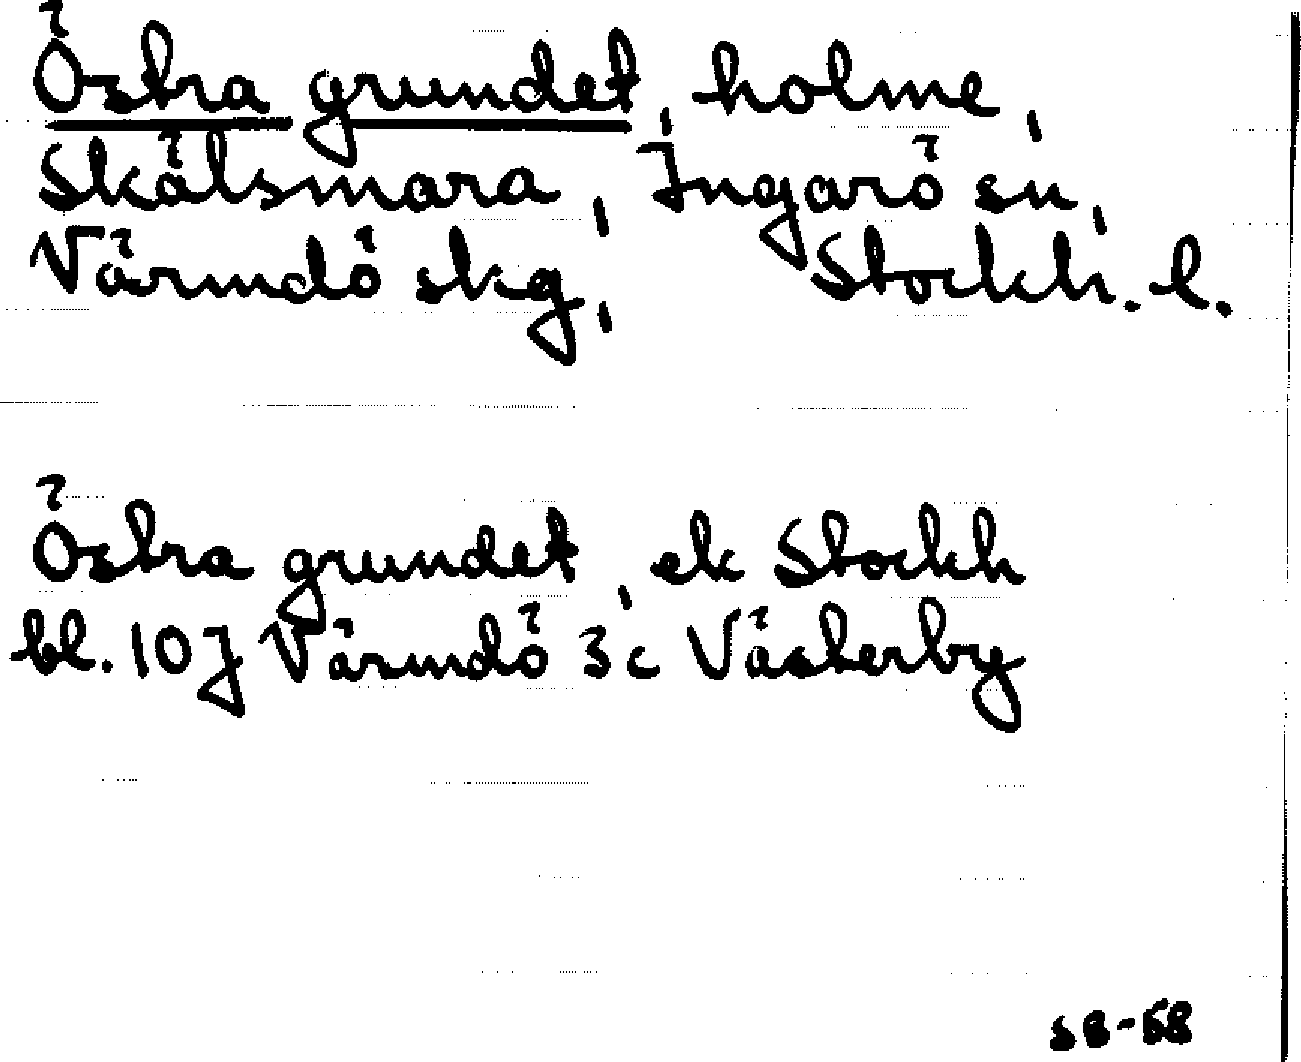 Östra grundet, holme,
Skälsmara, Ingarö sn,
Värmdö skg, Stockh. l.
Östra grundet, ek Stockh
bl. 10J Värmdö 3c Västerby
SB-58